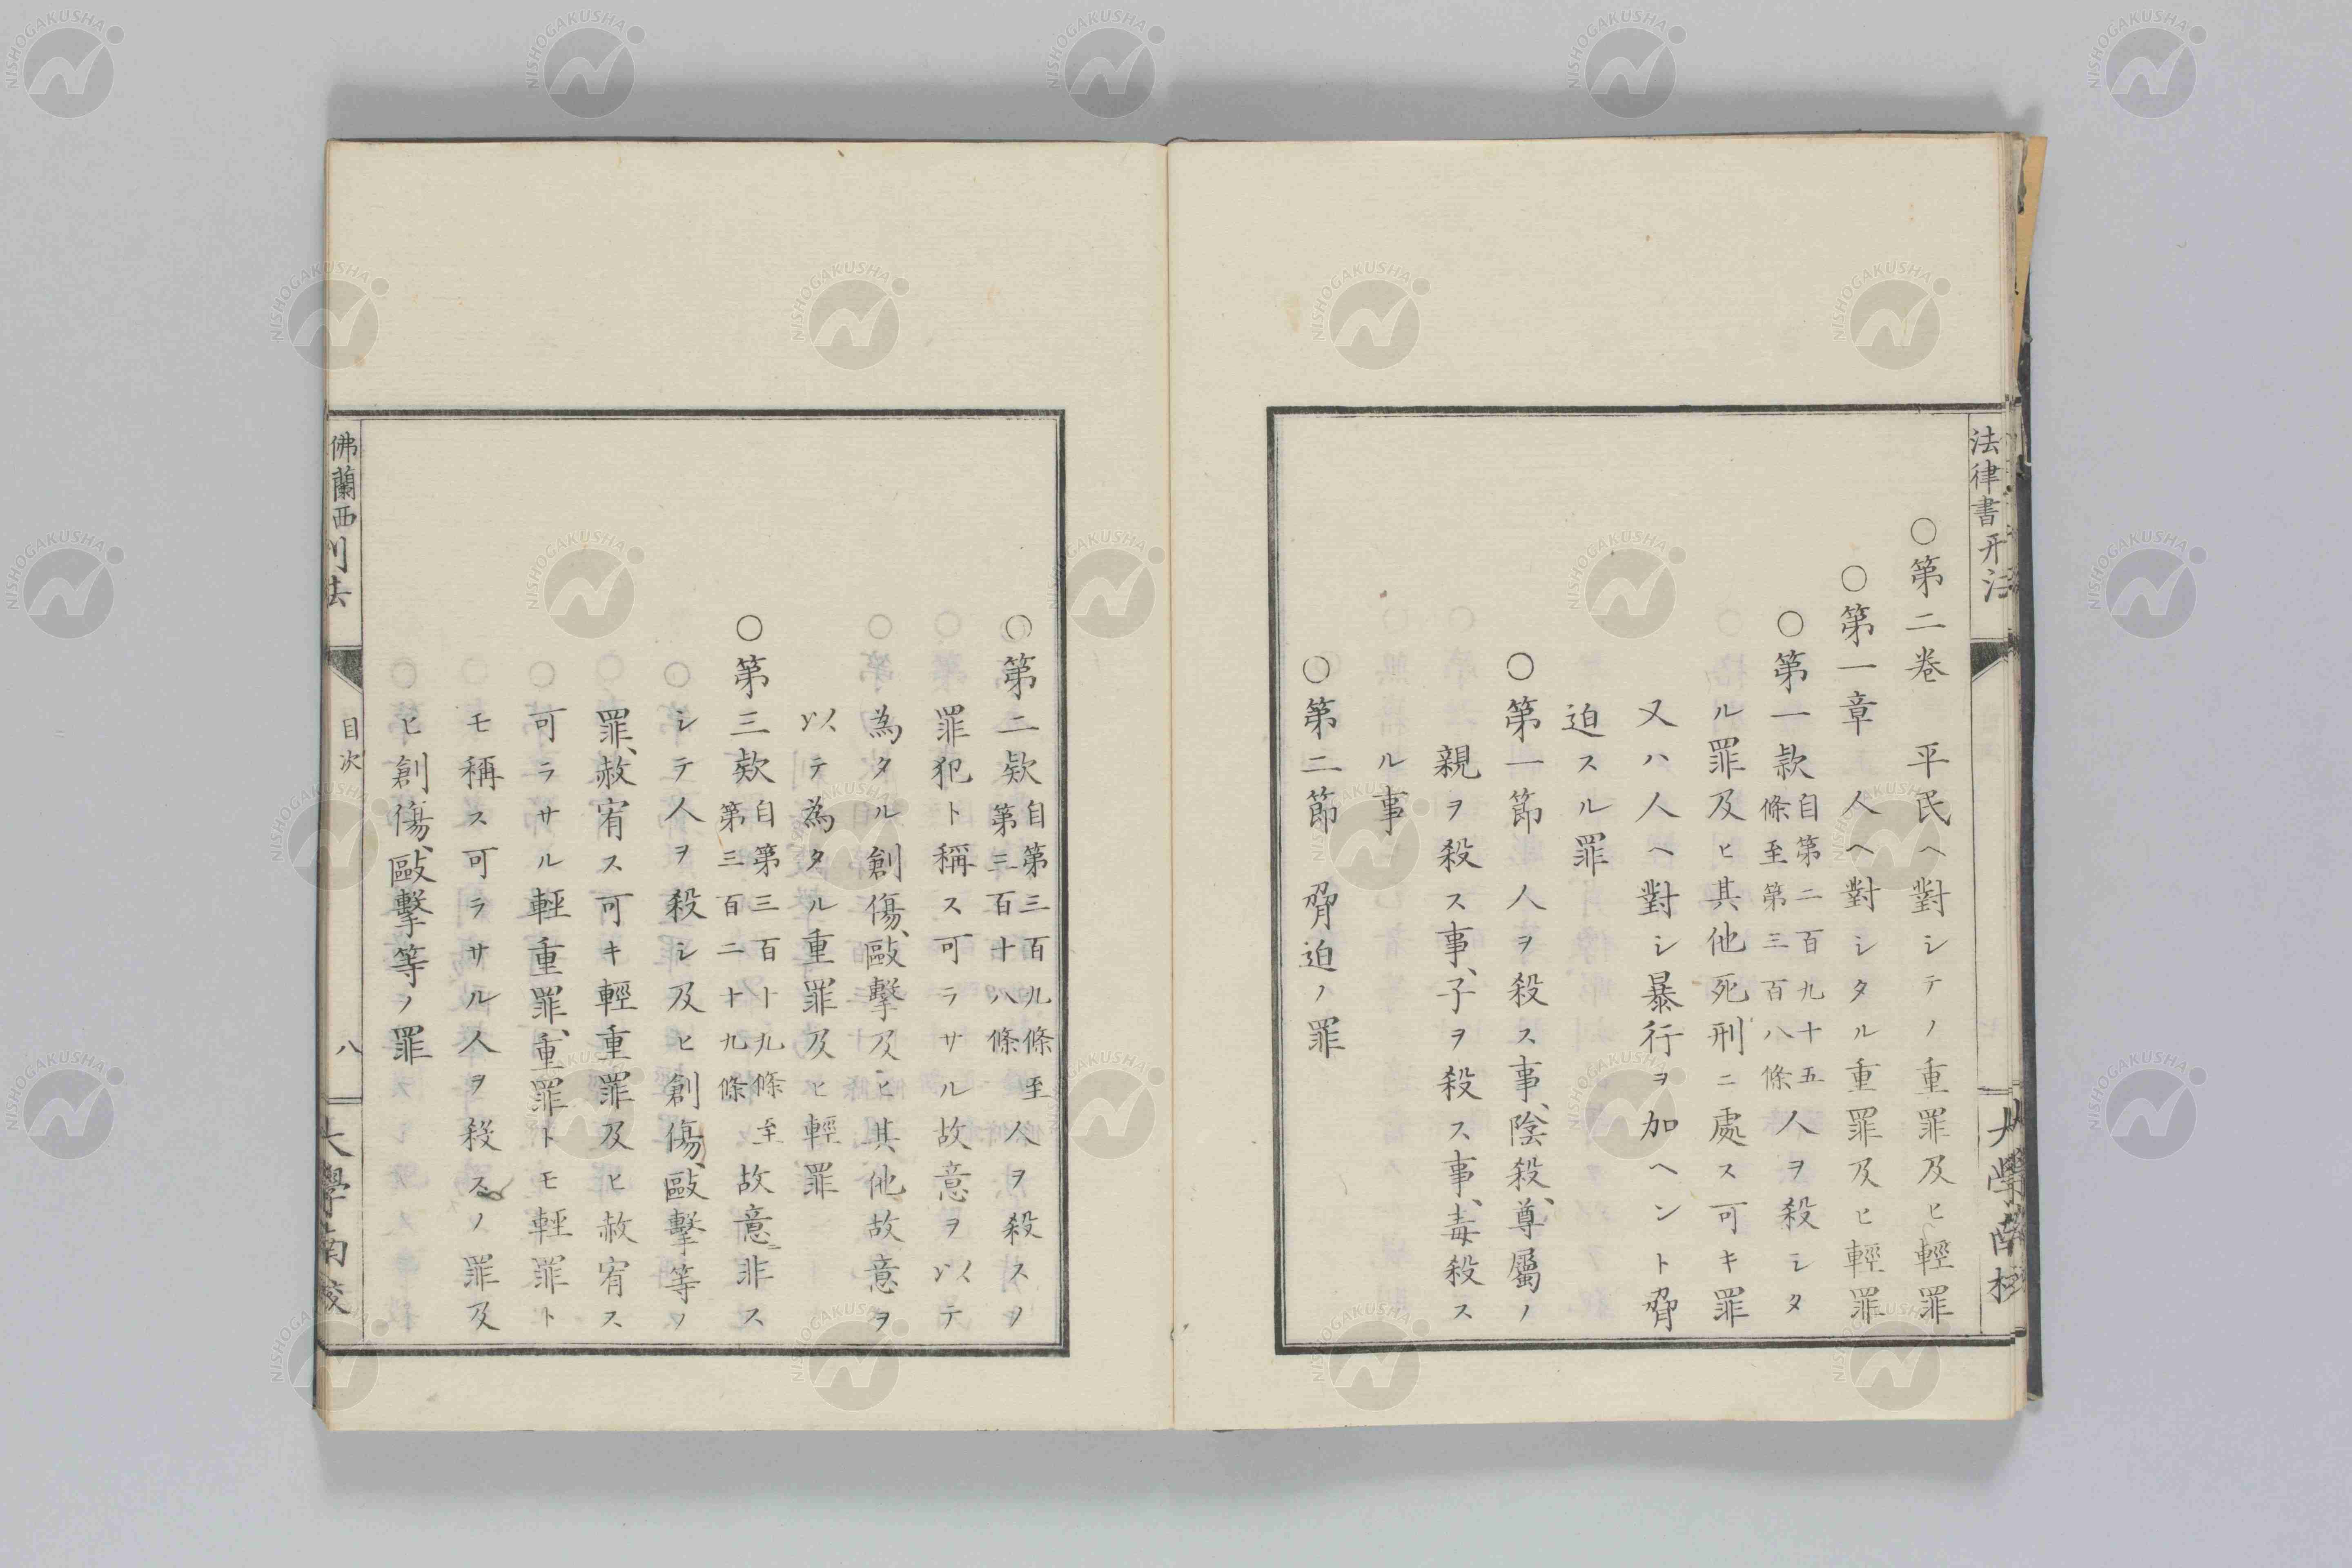 法律書刑法
○第二卷　平民ヘ對シテノ重罪及ヒ輕罪
○第一章　人ヘ對シタル重罪及ヒ輕罪
○第一款　自第二百九十五條至第三百八條　人ヲ殺シタ
ル罪及ヒ其他死刑ニ處ス可キ罪
又ハ人ヘ對シ暴行ヲ加ヘント脅
迫スル罪
○第一節　人ヲ殺ス事、陰殺、尊屬ノ
親ヲ殺ス事、子ヲ殺ス事、毒殺ス
ル事
○第二節　脅迫ノ罪
大學南校
○第二欵　自第三百九條至第三百十八條　人ヲ殺スヲ
罪犯ト稱ス可ラサル故意ヲ以テ
為タル創傷、毆擊及ヒ其他故意ヲ
以テ為タル重罪及ヒ輕罪
○第三欵　自第三百十九條至第三百二十九條　故意ニ非ス
シテ人ヲ殺シ及ヒ創傷、毆擊等ノ
罪、赦宥ス可キ輕重罪及ヒ赦宥ス
可ラサル輕重罪、重罪トモ輕罪ト
モ稱ス可ラサル人ヲ殺スノ罪及
ヒ創傷、毆擊等ノ罪
佛蘭西刑法
目次
八
大學南校
NISHOGAKUSHA